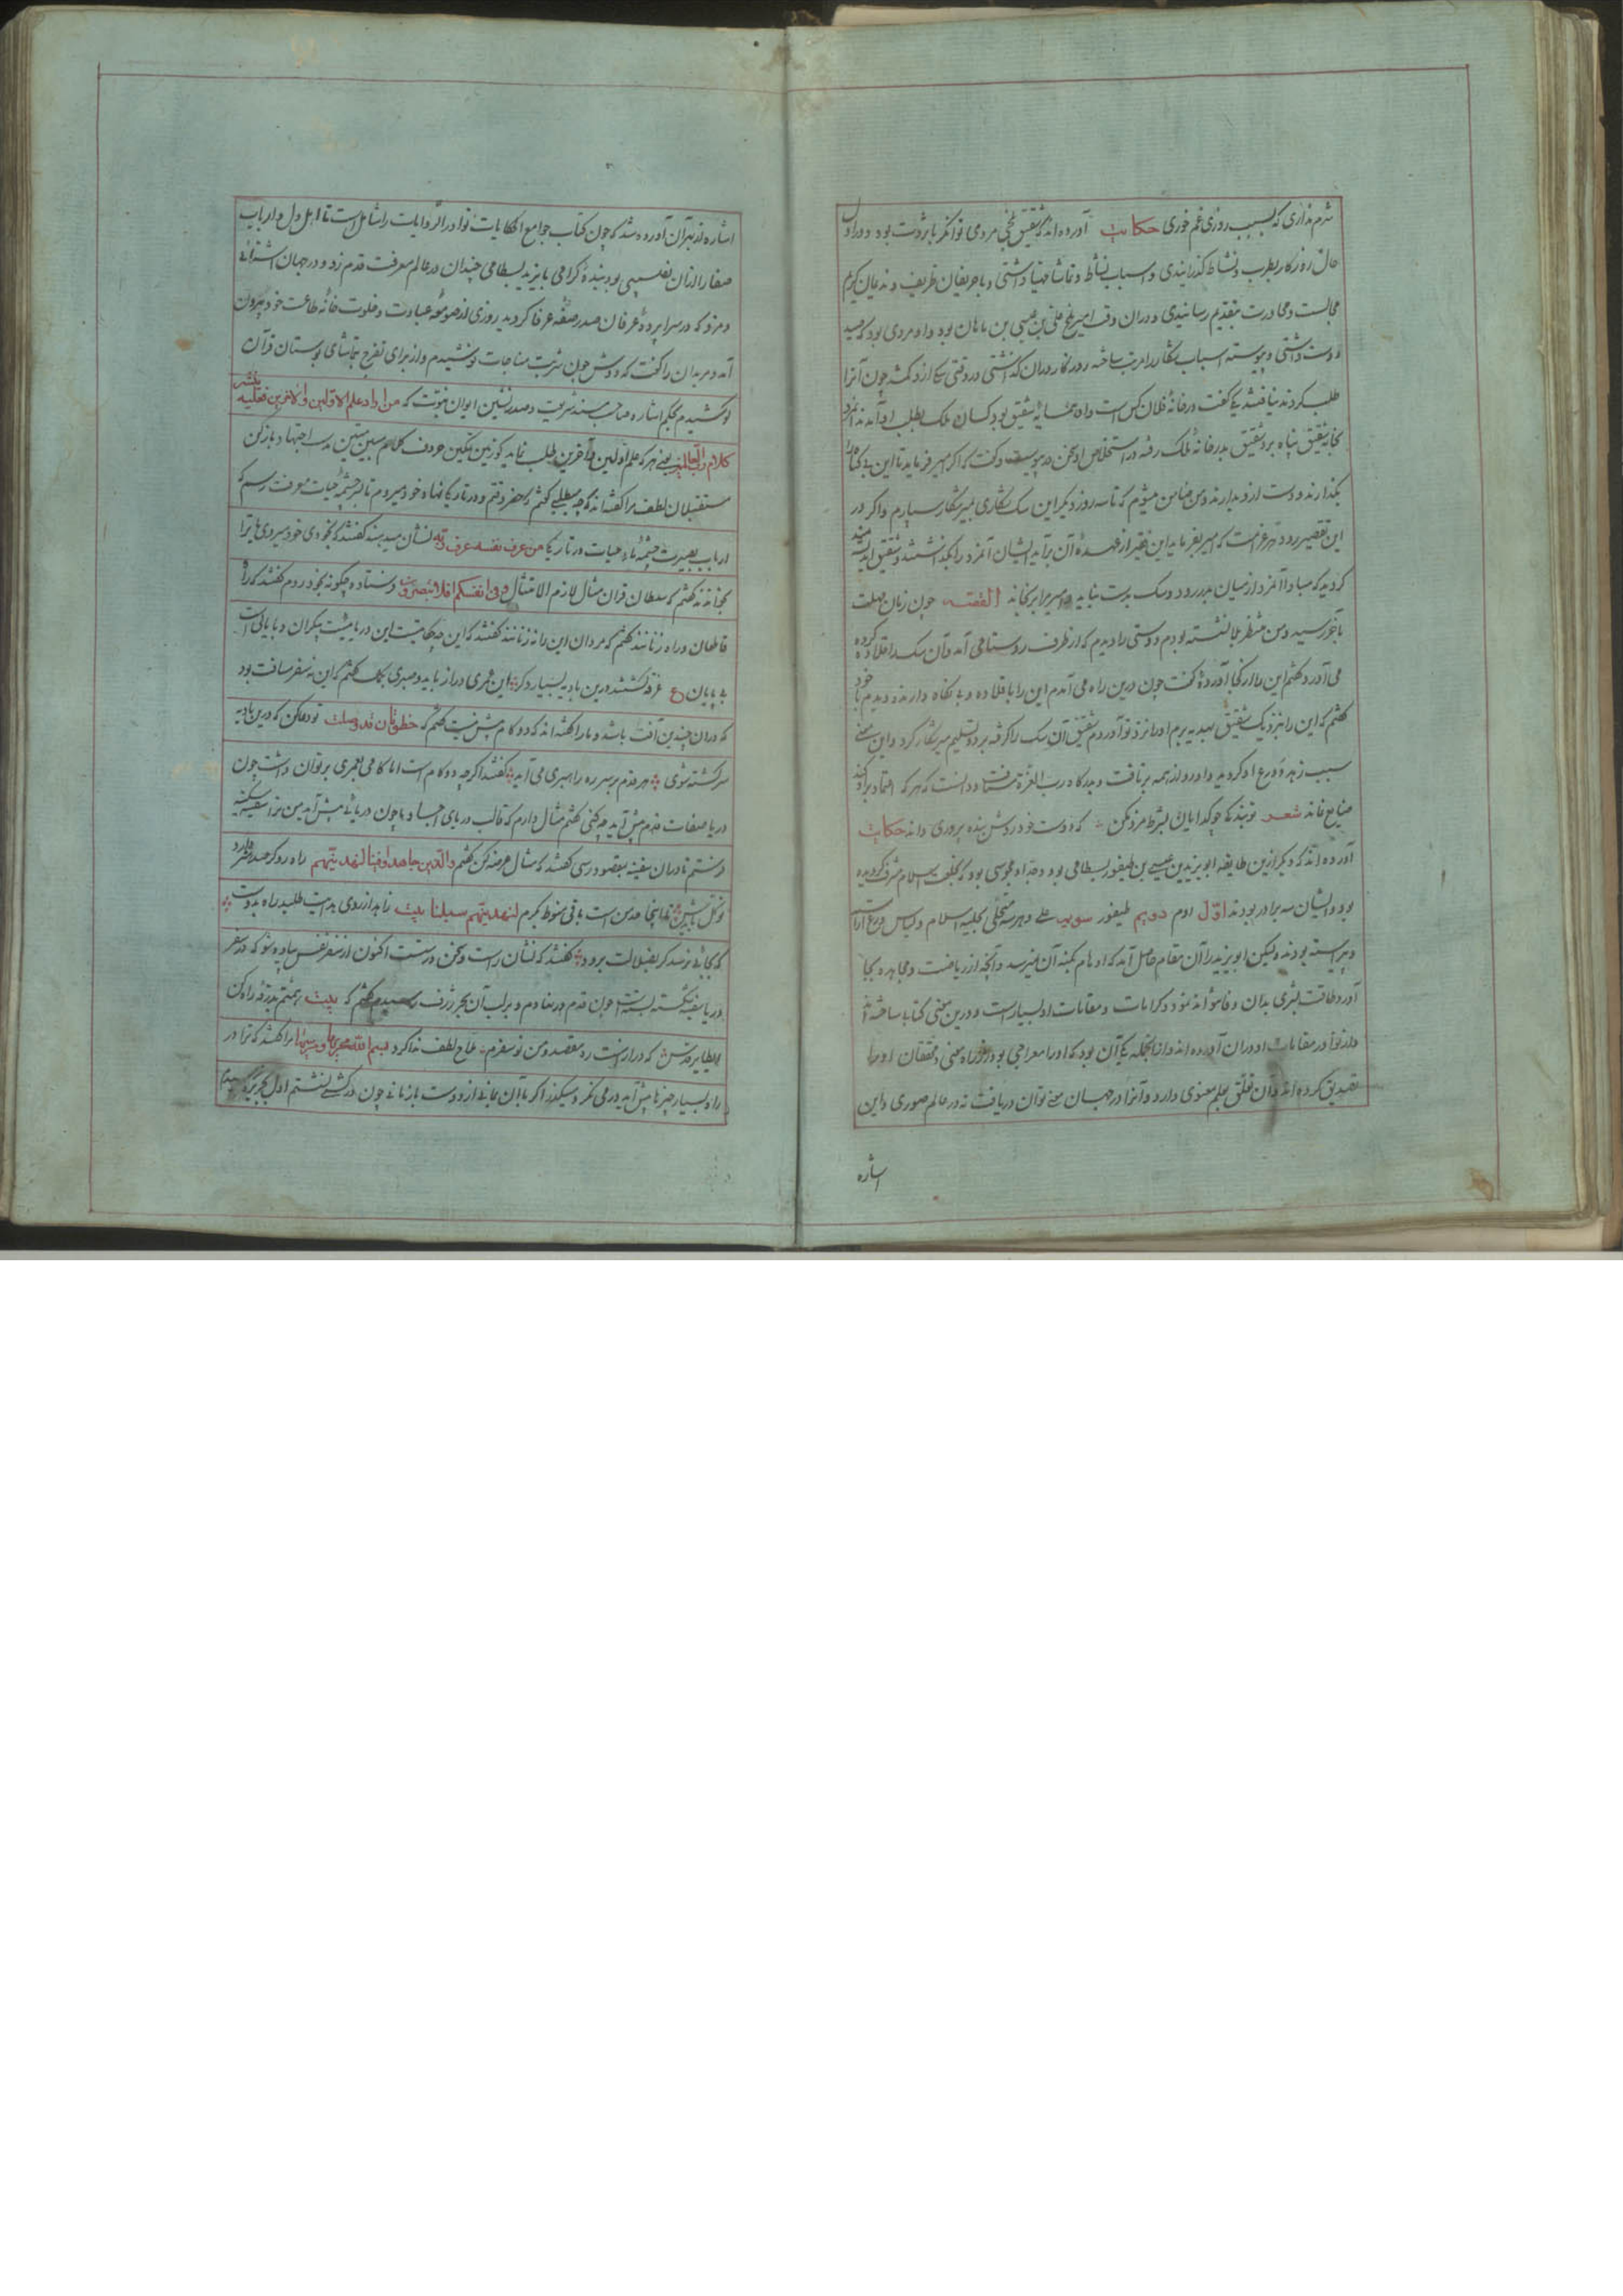 شرم نداری که بسبب روزی غم خوری حکایت آورده اند که شقیق بلخی مردمی توانگر با ثروت بود و در اول
حال روزکار بطرب و نشاط کذرانیدی و اسباب نشاط و تماشا مهیا داشتی و با حریفان ظریف و ندیمان کریم
مجالست و محاورت بتقدیم رسانیدی و دران وقت امیر بلخ علی بن عیسی بن ماهان بود و او مردی بود که صید
دوست داشتی و پیوسته اسباب شکار را مرتب ساخته روزکار دران کذاشتی در وقتی سکی ازو کم شد چون آنرا
طلب کردند نیافتند یکی کفت در خانهٔ فلان کس است و او همسایهٔ شقیق بود کسان ملک بطلب او آمدند آنمرد
بخانهٔ شقیق پناه برد شقیق بدر خانهٔ ملک رفته در استخلاص او سخن در پیوست و کفت که اکر میر فرماید تا این بی کناه را
بکذارند و دست ازو بدارند و من ضامن میشوم که تا سه روز دیکر این سک شکاری بمیر شکار سپارم و اکر در
این تقصیر رود هر غرامت که امیر بفرماید این فقیر از عهدهٔ آن برآید ایشان آنمرد را بکذاشتند و شقیق اندیشه مند
کردید که مبادا آنمرد از میان بدر رود و سک بدست نیاید و میر مرا برنجاند القصه چون زمان مهلت
بآخر رسید و من منتظر بلا نشسته بودم دوستی را دیدم که از طرف روستا می آمد و آن سک را قلاده کرده
می آورد کفتم این را از کجا آوردهٔ کفت چون درین راه می آمدم این را با قلاده و بی نکاه دارنده دیدم با خود
کفتم که این را بنزدیک شقیق بهدیه برم او را نزد تو آوردم شقیق آن سک را کرفته برد و تسلیم میر شکار کرد و این معنی
سبب زهد و ورع او کردید و او رو از همه برتافت و بدرکاه رب العزة شتافت و دانست که هر که اعتماد برو کند
ضایع نماند شعر تو بندکی چو کدایان بشرط مزد مکن که دوست خود روش بنده پروری داند حکایت
آورده اند که دیکر ازین طایفه ابو یزید بن عیسی بن طیفور بسطامی بود و جد او مجوسی بود که بخلعت اسلام مشرف کردیده
بود و ایشان سه برادر بودند اوّل ادم دویم طیفور سویم علی و هر سه متحلّی بحلیهٔ اسلام و لباس ورع آراسته
و پیراسته بودند و لیکن ابو یزید را آن مقام حاصل آمد که اوهام بکنه آن نمیرسد و آنچه از ریاضت و مجاهده بجا
آورد طاقت بشری بدان وفا نتواند نمود و کرامات و مقامات او بسیار است و درین معنی کتابها ساخته اند
و از نوادر مقامات او دران آورده اند و از انجمله یکی آن بود که او را معراجی بود از راه معنی و محققان او را
تصدیق کرده اند و آن تعلق بعلم معنوی دارد و آنرا در جهان معنی توان دریافت نه در عالم صوری و این
اشاره
اشاره از بهر آن آورده شد که چون کتاب جوامع الحکایات نوادر الروایات را شامل است تا اهل دل و ارباب
صفا را ازان نصیبی بود بندهٔ کرامی بایزید بسطامی چندان در عالم معرفت قدم زد و در جهان
و مزد که در سراپردهٔ عرفان صدر صفهٔ عرفا کردید روزی از صومعهٔ عبادت و خلوت خانهٔ طاعت خود بیرون
آمد و مریدان را کفت که دوش چون شربت مناجات نوشیدم و از برای تفرج بتماشای بوستان قرآن
کوشیدم بحکم اشارهٔ صاحب مسند شریعت و صدر نشین ایوان نبوت که من اراد علم الاولین والاخرین فعلیه
کلام رب العالمین یعنی هر که علم اولین و آخرین طلب نماید کو زمین تمکین حروف کلام مبین متین بدست اجتهاد باز کن
مستقبلان لطف مرا کفتند که چه میطلبی کفتم که خضر وقتم و در تاریکی نهاد خود میروم تا بسرچشمهٔ حیات معرفت رسم که
ارباب بصیرت چشمهٔ ماء حیات در تاریکی من عرف نفسه عرف ربه نشان میدهند کفتند که بخودی خود میروی یا ترا
بخوانده اند کفتم که سلطان قرآن مثال لازم الامتثال وفی انفسکم افلا تبصرون فرستاده چکونه بخود روم کفتند که راه
قاطعان در راه زنانند کفتم که مردان این راه نه زنانند کفتند که این چه حکایتست این دریائیست بیکران و بیابانی است
بی پایان ع غرقه کشتند درین بادیه بسیار دکر این را عمری دراز باید و صبری کفتم که این نه سفر مسافت بود
که دران چندین آفت باشد و مارا کفته اند که دو کام بیش نیست کفتم که خطوتان قد وصلت تو دعا کن که درین بادیه
سرکشته شوی هر قدم بر سر ره راهبری می آید کفتند اکرچه دو کام است اما کامی بعمری بر توان داشت چون
دریا صفات قدم پیش آید چه کنی کفتم مثال دارم که قالب دریای اجساد ما چون دریائی پیش آید من نیز سفینه سکینه
در نشستم تا دران سفینه بمقصود رسی کفتند که مثال عرضه کن کفتم والذین جاهدوا فینا لنهدینهم راه رو کر صد هنر دارد
توکل بایدش تا اینجا مدمن است باقی منوط بکرم لنهدینهم سبلنا بیت زاهد از روی بدایت طلبد راه بدوست
که بجائی نرسد کر بضلالت برود کفتند که نشان راست و سخن درست اکنون از سفر نفس پیاده شو که در سفر
دریا سفینه شکسته چون قدم در نهادم و بر لب آن بحر ژرف رسیدم کفتم که بیت همتم بدرقهٔ راه کن
ای طایر قدس که دراز است ره مقصد و من نو سفرم ملاح لطف ندا کرد بسم الله مجریها و مرسیها مرا کفتند که ترا در
راه بسیار چیزها پیش آید در می نکر و میکذر اکر بآن بمانی از دوست باز مانی چون در کشتی نشستم اول بحر